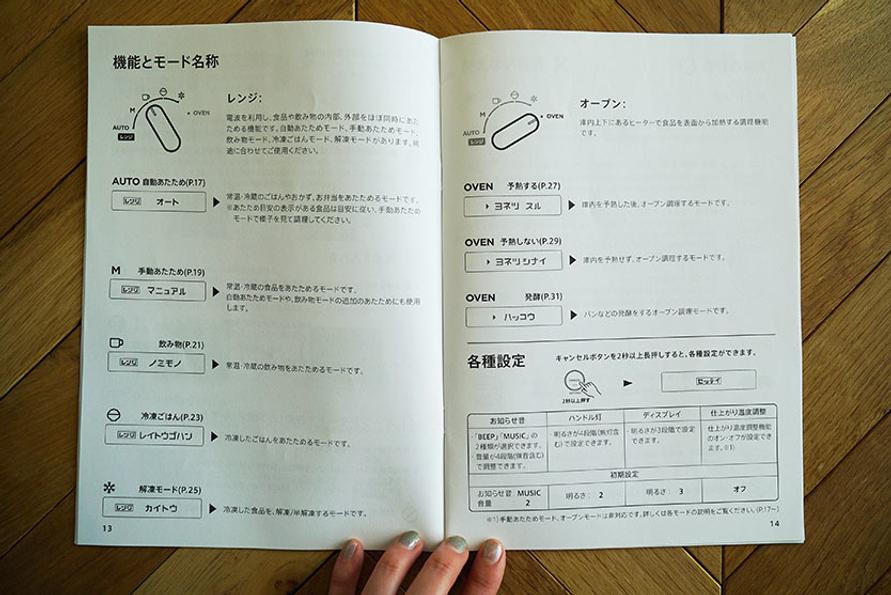 機能とモード名称
AUTO
M
OVEN
レンジ
レンジ:
電波を利用し、食品や飲み物の内部、外部をほぼ同時にあた
ためる機能です。自動あたためモード、手動あたためモード、
飲み物モード、冷凍ごはんモード、解凍モードがあります。用
途に合わせてご使用ください。
AUTO 自動あたため(P.17)
レンジ オート
常温・冷蔵のごはんやおかず、お弁当をあたためるモードです。
※あたため目安の表示がある食品は目安に従い、手動あたため
モードで様子を見て調理してください。
M 手動あたため(P.19)
レンジ マニュアル
常温・冷蔵の食品をあたためるモードです。
自動あたためモードや、飲み物モードの追加のあたためにも使用
します。
飲み物(P.21)
レンジ ノミモノ
常温・冷蔵の飲み物をあたためるモードです。
冷凍ごはん(P.23)
レンジ レイトウゴハン
冷凍したごはんをあたためるモードです。
解凍モード(P.25)
レンジ カイトウ
冷凍した食品を、解凍/半解凍するモードです。
13
AUTO
M
OVEN
レンジ
オーブン:
庫内上下にあるヒーターで食品を表面から加熱する調理機能
です。
OVEN 予熱する(P.27)
ヨネツ スル
庫内を予熱した後、オーブン調理するモードです。
OVEN 予熱しない(P.29)
ヨネツ シナイ
庫内を予熱せず、オーブン調理するモードです。
OVEN 発酵(P.31)
ハッコウ
パンなどの発酵をするオーブン調理モードです。
各種設定
キャンセルボタンを2秒以上長押しすると、各種設定ができます。
2秒以上押す
セッテイ
お知らせ音 ハンドル灯 ディスプレイ 仕上がり温度調整
・「BEEP」「MUSIC」の
2種類が選択できます。
・音量が4段階(無音含む)
で調整できます。
・明るさが4段階(無灯含
む)で設定できます。
・明るさが3段階で設定
できます。
仕上がり温度調整機能
のオン・オフが設定でき
ます。※1)
初期設定
お知らせ音：MUSIC
音量 2
明るさ： 2
明るさ： 3
オフ
※1)手動あたためモード、オーブンモードは非対応です。詳しくは各モードの説明をご覧ください。(P.17~)
14